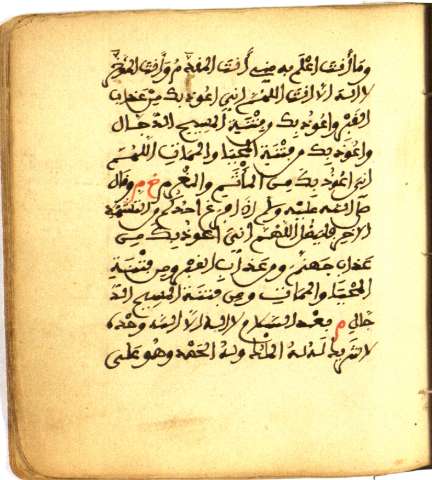 وما أنت أعلم به مني أنت المقدم وأنت المؤخر
لا إله إلا أنت اللهم إني أعوذ بك من عذاب
القبر وأعوذ بك من فتنة المسيح الدجال
وأعوذ بك من فتنة المحيا والممات اللهم
إني أعوذ بك من المأثم والمغرم خ م وقال
صلى الله عليه وسلم إذا فرغ أحدكم من التشهد
الأخير فليقل اللهم إني أعوذ بك من
عذاب جهنم ومن عذاب القبر ومن فتنة
المحيا والممات ومن فتنة المسيح الد
جال م بعد السلام لا إله إلا الله وحده
لا شريك له له الملك وله الحمد وهو على